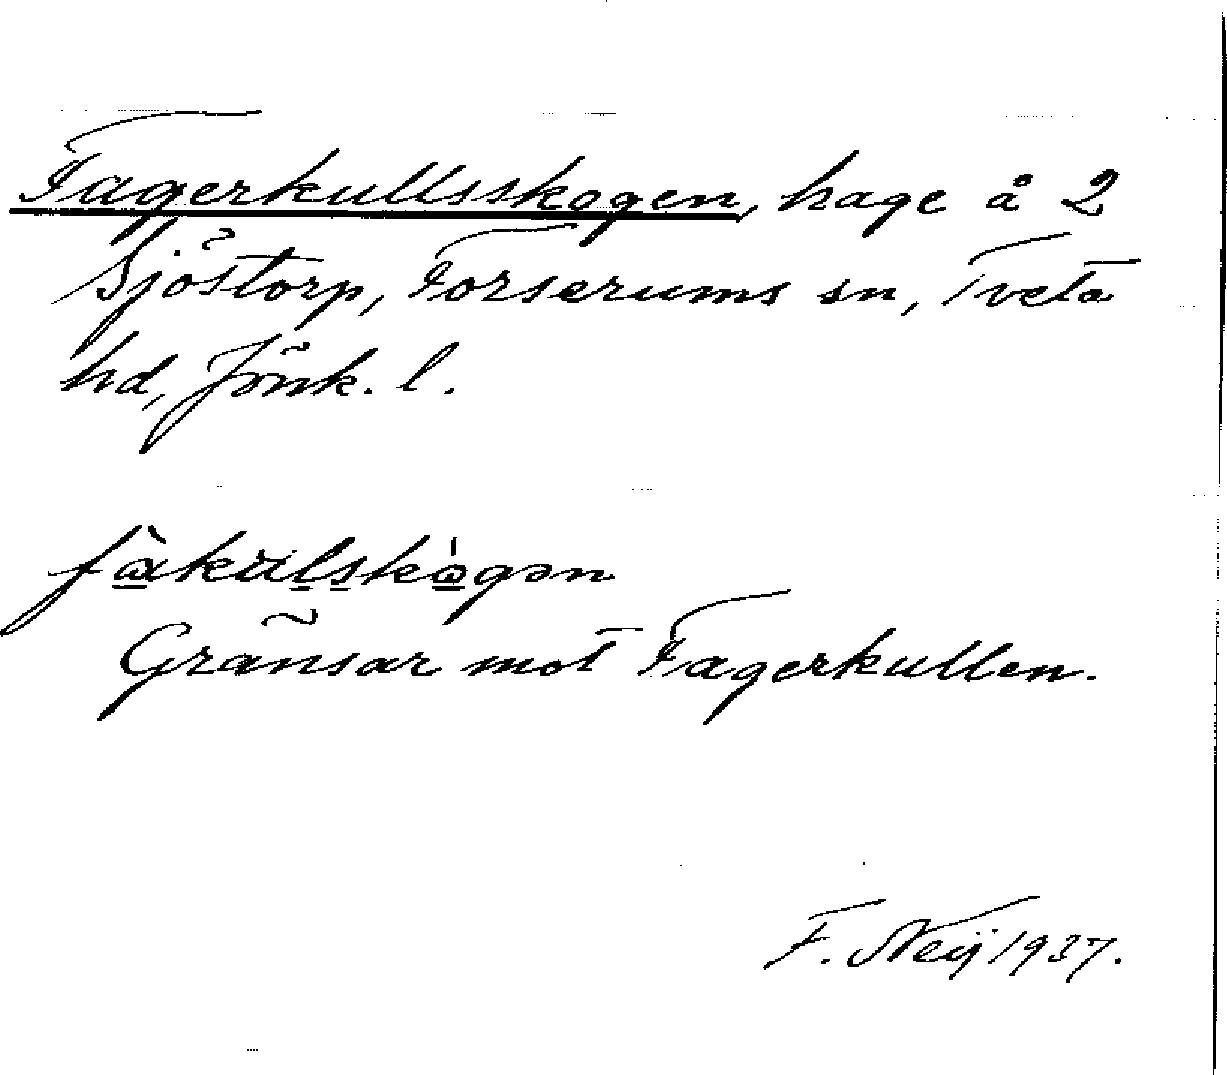 Fagerkullsskogen, hage å 2
Sjöstorp, Forserums sn, Tveta
hd, Jönk. l.
Gränsar mot Fagerkullen.
F. Neij 1937.